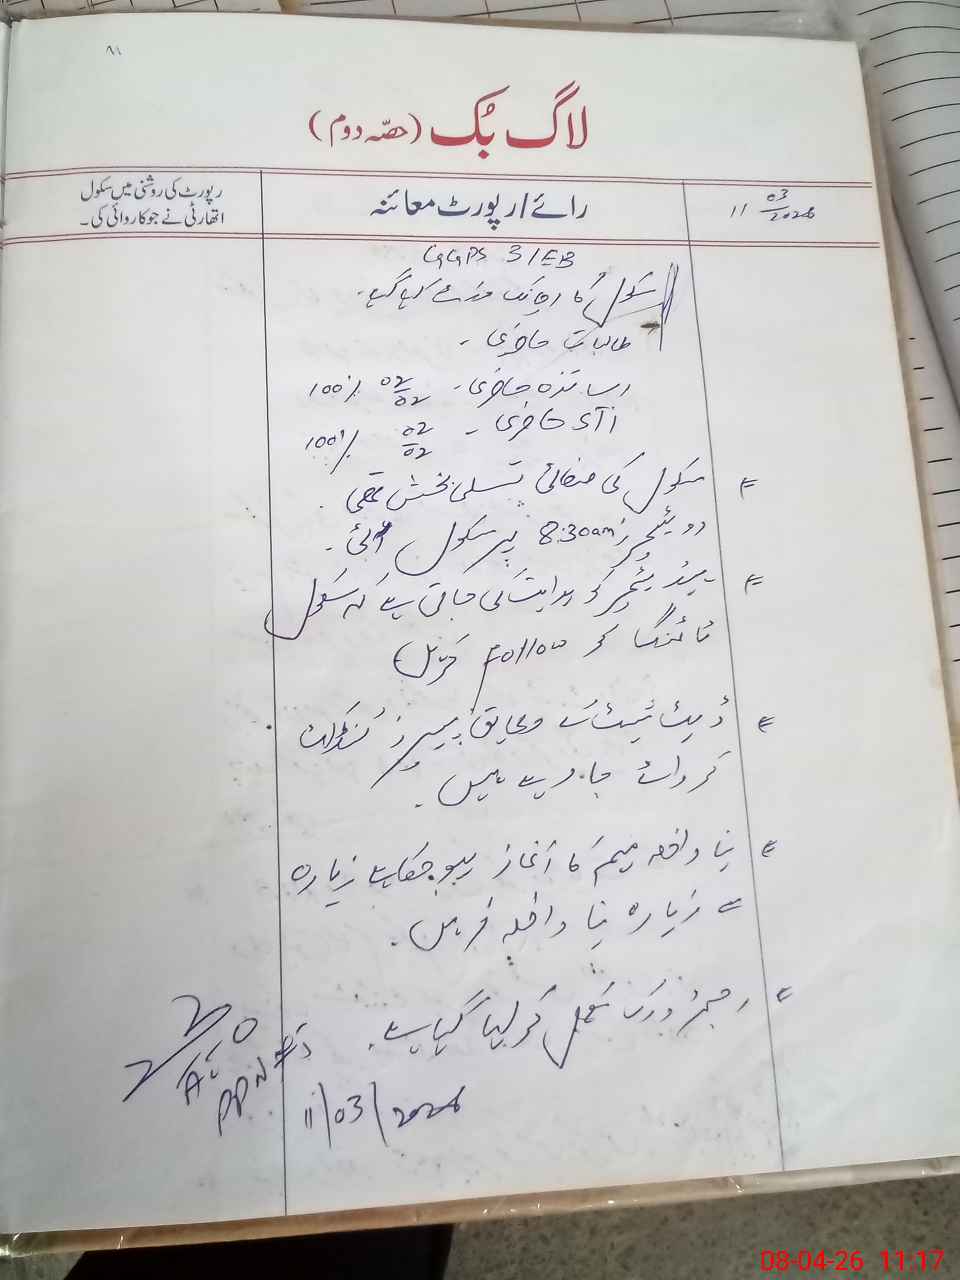 لاگ بُک (حصّہ دوم)
11 03/2026
رائے/رپورٹ معائنہ
رپورٹ کی روشنی میں سکول
اتھارٹی نے جو کاروائی کی۔
GGPS 3/EB
سکول کا اچانک وزٹ کیا گیا۔
طالبات حاضری -
اساتذہ حاضری - 02/02 100%
حاضری - 02/02 100%
سکول کی صفائی تسلی بخش تھی۔
دو ٹیچرز 8:30am پر سکول آئی۔
ہیڈ ٹیچر کو ہدایت کی جاتی ہے کہ سکول
ٹائمنگ کو Follow کریں
ڈیٹ شیٹ کے مطابق پیپرز کنڈکٹ
کروائے جا رہے ہیں۔
نیا داخلہ مہم کا آغاز ہو چکا ہے زیادہ
سے زیادہ نیا داخلہ کریں۔
رجسٹر ورک مکمل کر لیا گیا ہے۔
AEO
11/03/2026
08-04-26 11:17